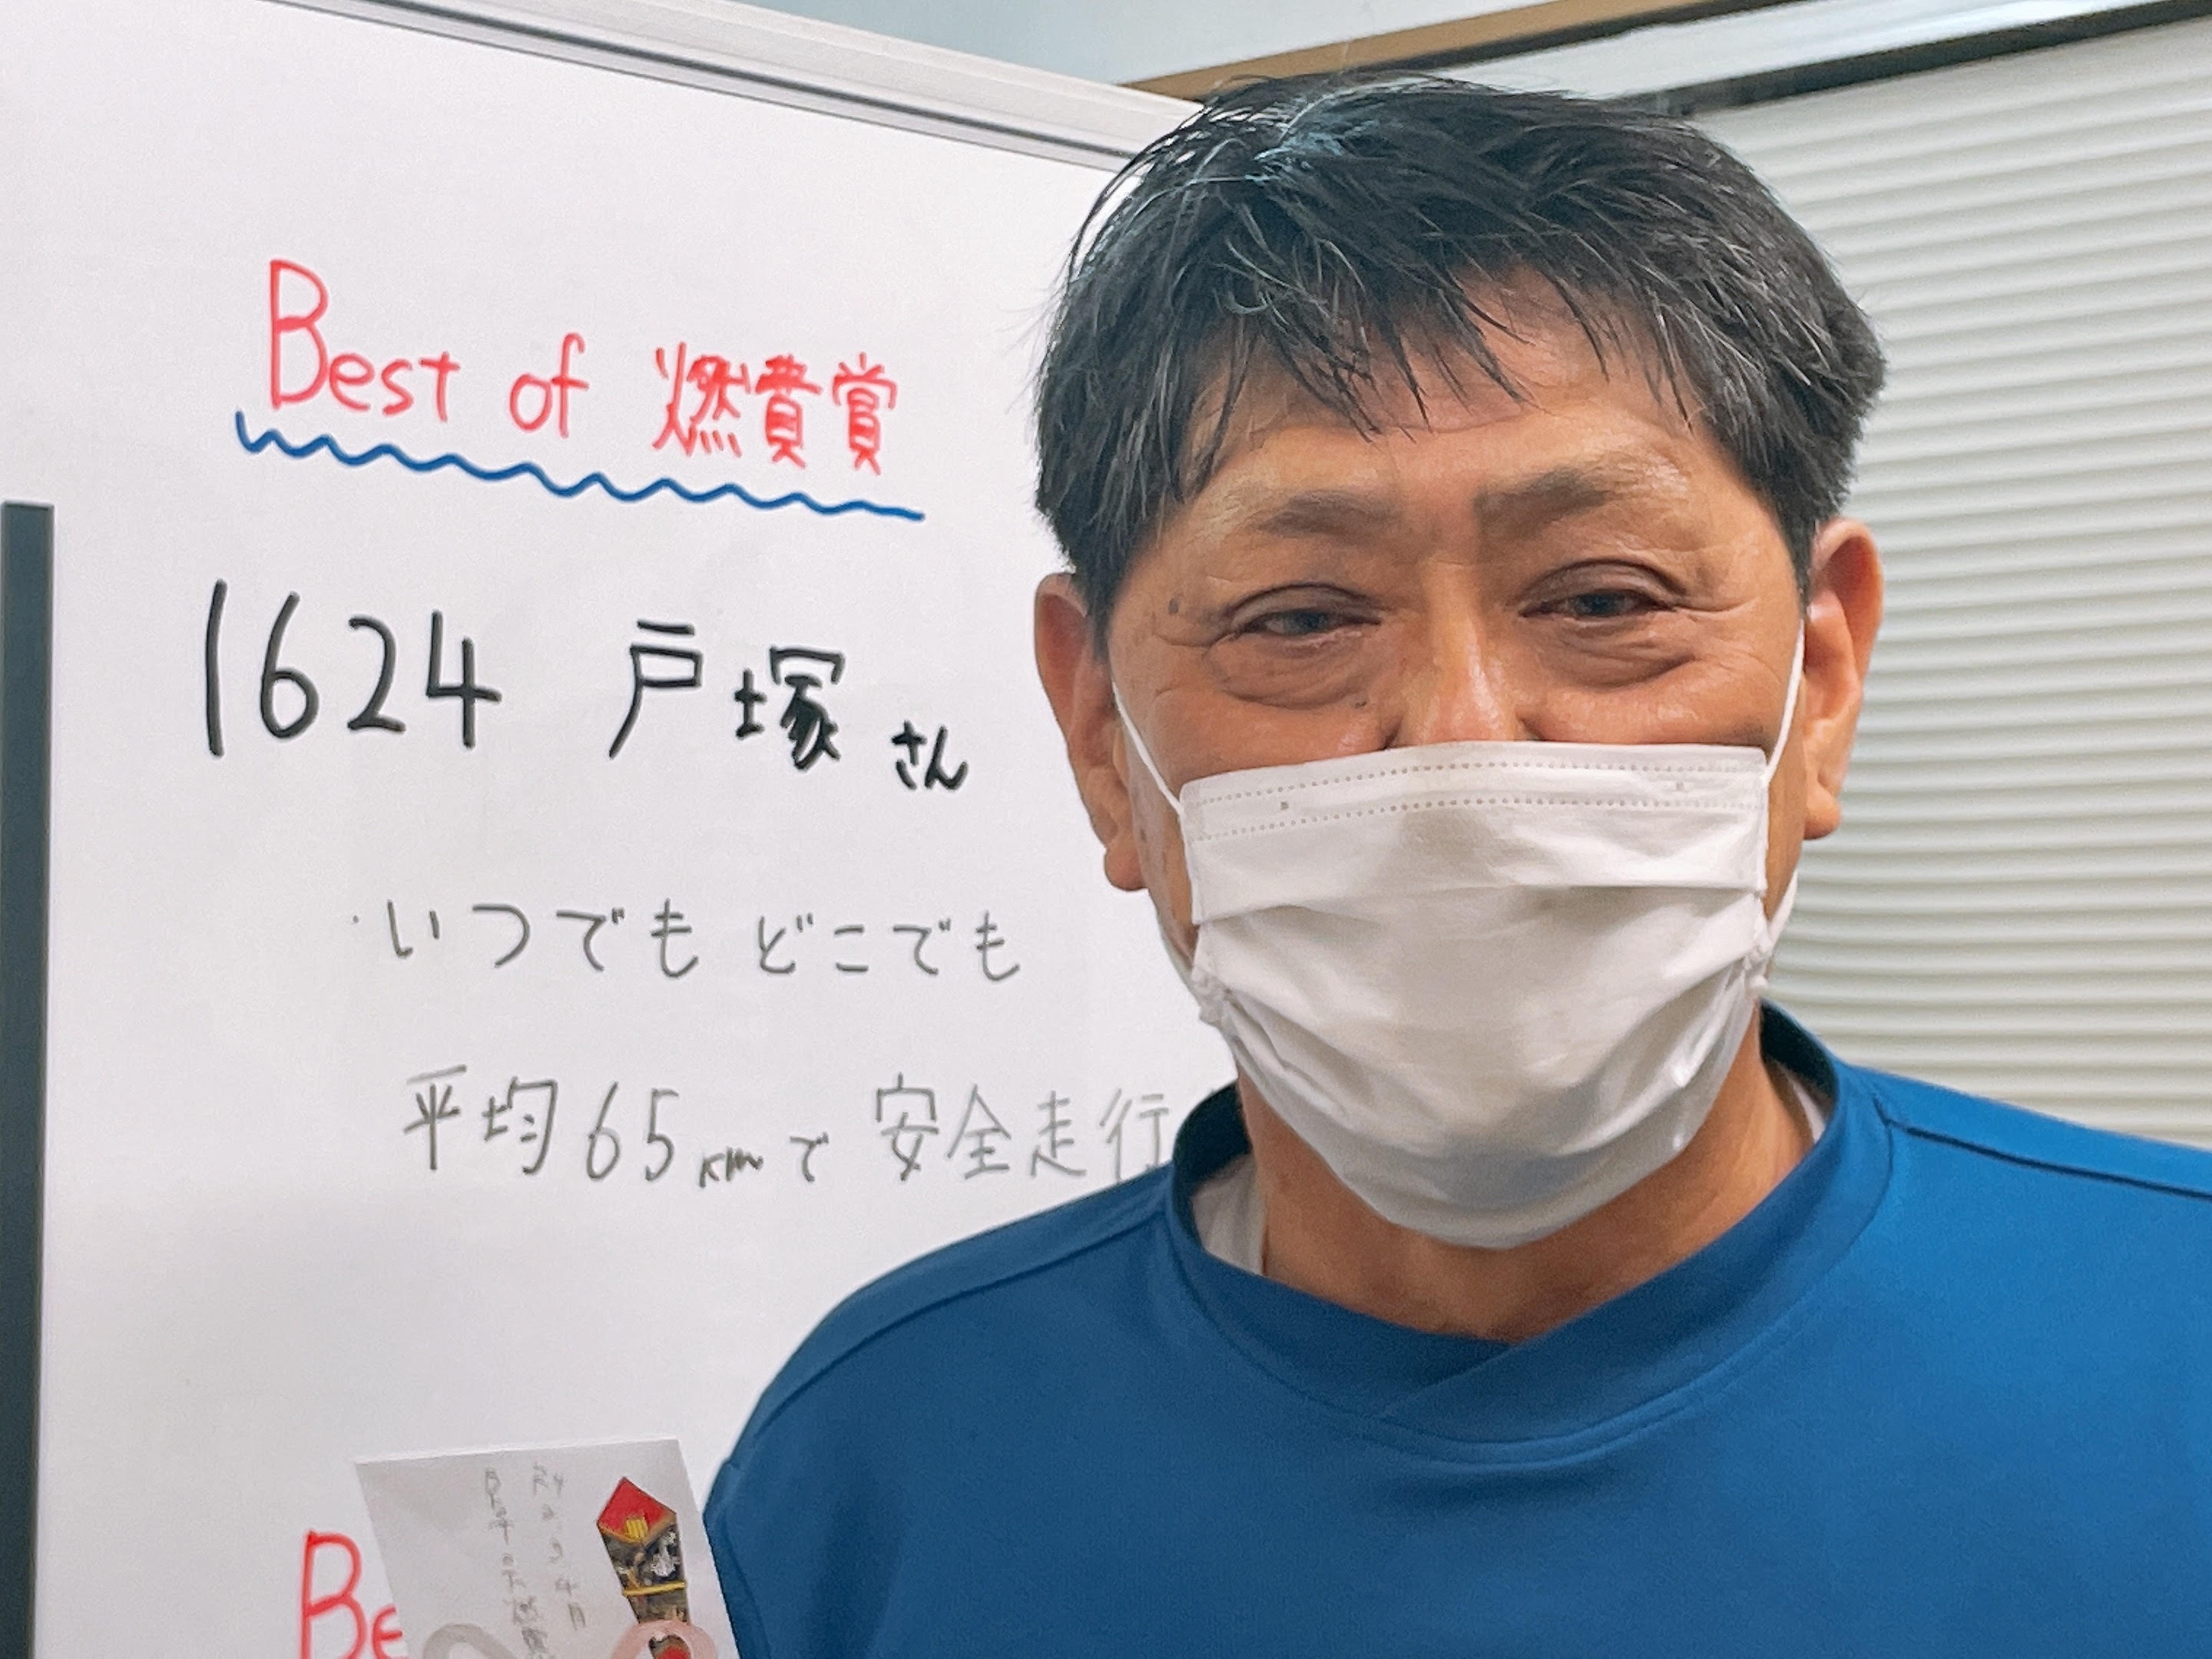 Best of 燃費賞
1624 戸塚さん
・いつでもどこでも
平均65kmで安全走行
Be